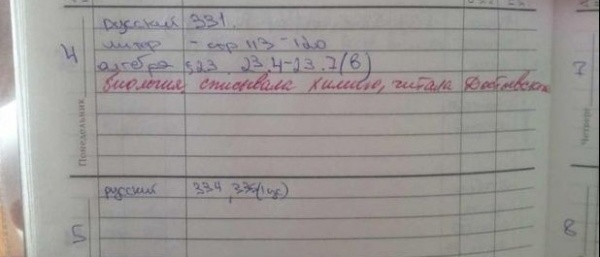 русский 331.
литер - стр 113-120
4
алгебра §23. 23.4-23.7(в)
биология списывала химию, читала Достоевского
Понедельник
7
Четверг
русский 334, 335(1 ус)
5
8